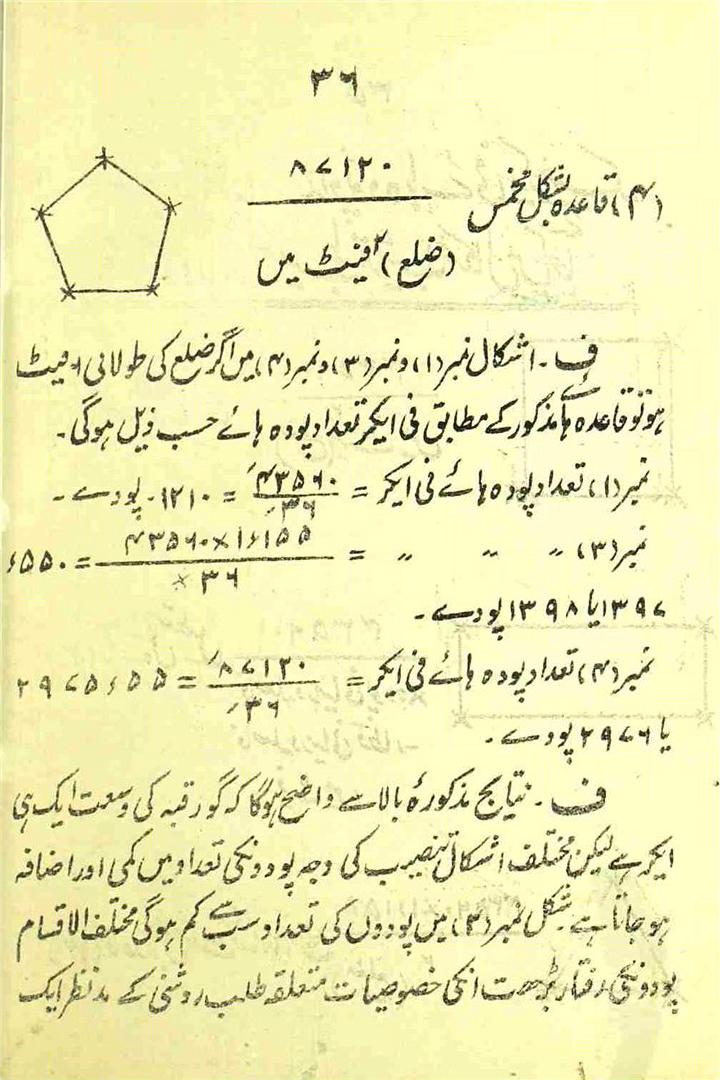 ۳۶
(۴) قاعدہ بشکل مخمس ۸۷۱۲۰
(ضلع)۲ فیٹ میں
ف۔ اشکال نمبر(۱) و نمبر(۳) و نمبر(۴) میں اگر ضلع کی طولانی ۶ فیٹ
ہو تو قاعدہ ہائے مذکور کے مطابق فی ایکر تعداد پودہ ہائے حسب ذیل ہوگی۔
نمبر(۱) تعداد پودہ ہائے فی ایکر = ۴۳۵۶۰ / ۳۶ = ۱۲۱۰۔ پودے۔
نمبر(۳) 〃 〃 〃 = ۴۳۵۶۰×۱۶۱۵۵ / ۳۶ = ۶۵۵۰
۱۳۹۷ یا ۱۳۹۸ پودے۔
نمبر(۴) تعداد پودہ ہائے فی ایکر = ۸۷۱۲۰ / ۳۶ = ۲۹۷۵۶۵۵
یا ۲۹۷۶ پودے۔
ف۔ نتایج مذکورۂ بالا سے واضح ہوگا کہ گو رقبہ کی وسعت ایک ہی
ایکر ہے لیکن مختلف اشکال تنصیب کی وجہ پودونکی تعداد میں کمی اور اضافہ
ہو جاتا ہے۔ شکل نمبر(۳) میں پودوں کی تعداد سب سے کم ہوگی مختلف الاقسام
پودونکی رفتار بڑھت انکی خصوصیات متعلقہ طلب روشنی کے مد نظر ایک